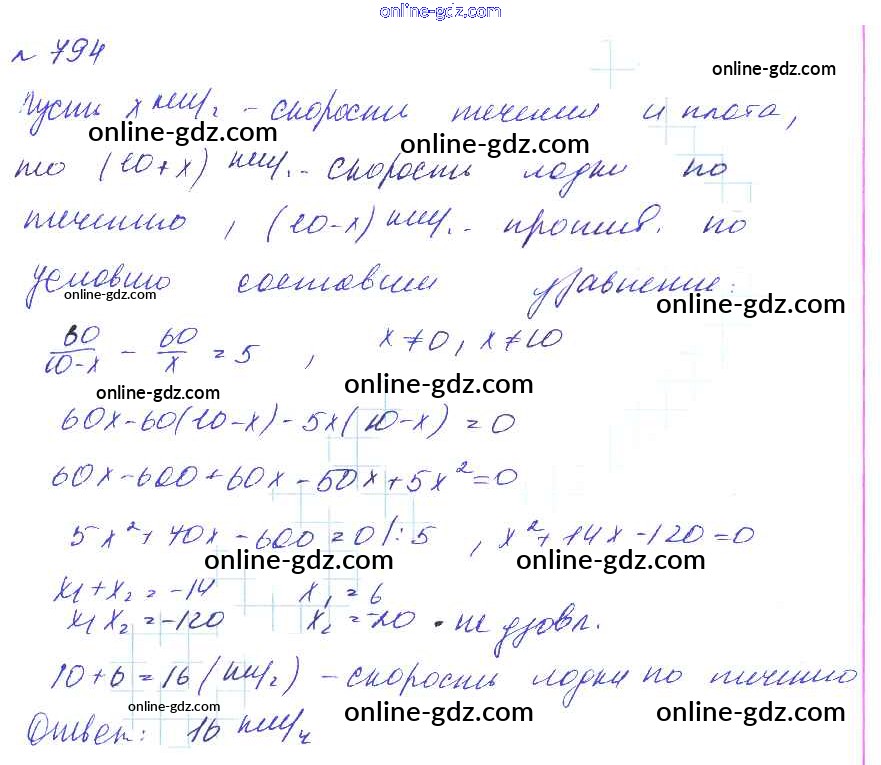 online-gdz.com
№ 794
online-gdz.com
Пусть x км/ч - скорость течения и плота,
online-gdz.com
online-gdz.com
то (10+x) км/ч. - скорость лодки по
online-gdz.com
течению, (10-x) км/ч. - против. по
условию составим уравнение:
online-gdz.com
online-gdz.com
60/(10-x) - 60/x = 5, x≠0, x≠10
online-gdz.com
online-gdz.com
60x-60(10-x)-5x(10-x)=0
60x-600+60x-50x+5x²=0
5x²+70x-600=0 |:5, x²+14x-120=0
online-gdz.com
online-gdz.com
x₁+x₂=-14 x₁=6
x₁x₂=-120 x₂=-20 - не удовл.
10+6=16 (км/ч) - скорость лодки по течению
online-gdz.com
online-gdz.com
online-gdz.com
Ответ: 16 км/ч